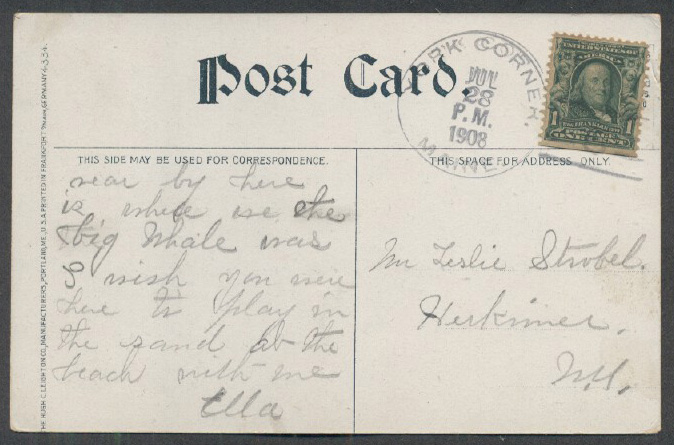 Post Card.
YORK CORNER.
JUL
28
P.M.
1908
MAINE
UNITED STATES OF AMERICA
FRANKLIN
1 POSTAGE 1
ONE CENT
THIS SIDE MAY BE USED FOR CORRESPONDENCE.
THIS SPACE FOR ADDRESS ONLY.
near by here
is where we the
big Whale was
I wish you were
here to play in
the sand at the
beach with me
Ella
Mr Leslie Strobel.
Herkimer.
N.Y.
THE HUGH C. LEIGHTON CO., MANUFACTURERS, PORTLAND, ME., U.S.A. PRINTED IN FRANKFORT GERMANY